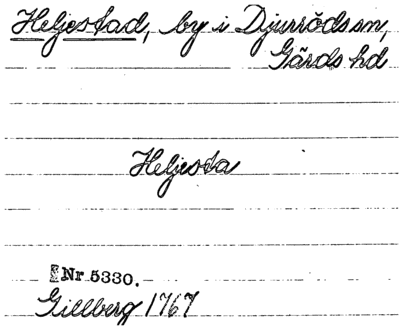 Heljestad, by i Djurröds sn,
Gärds hd
Heljesta
Nr 5330.
Gillberg 1767